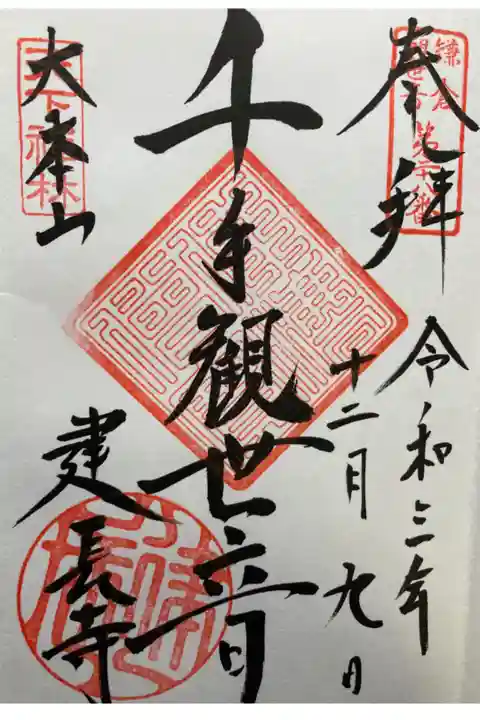 奉拝
鎌倉
観世音 第二十八番
令和三年
十二月九日
千手観世音
大本山
天下禅林
建長寺